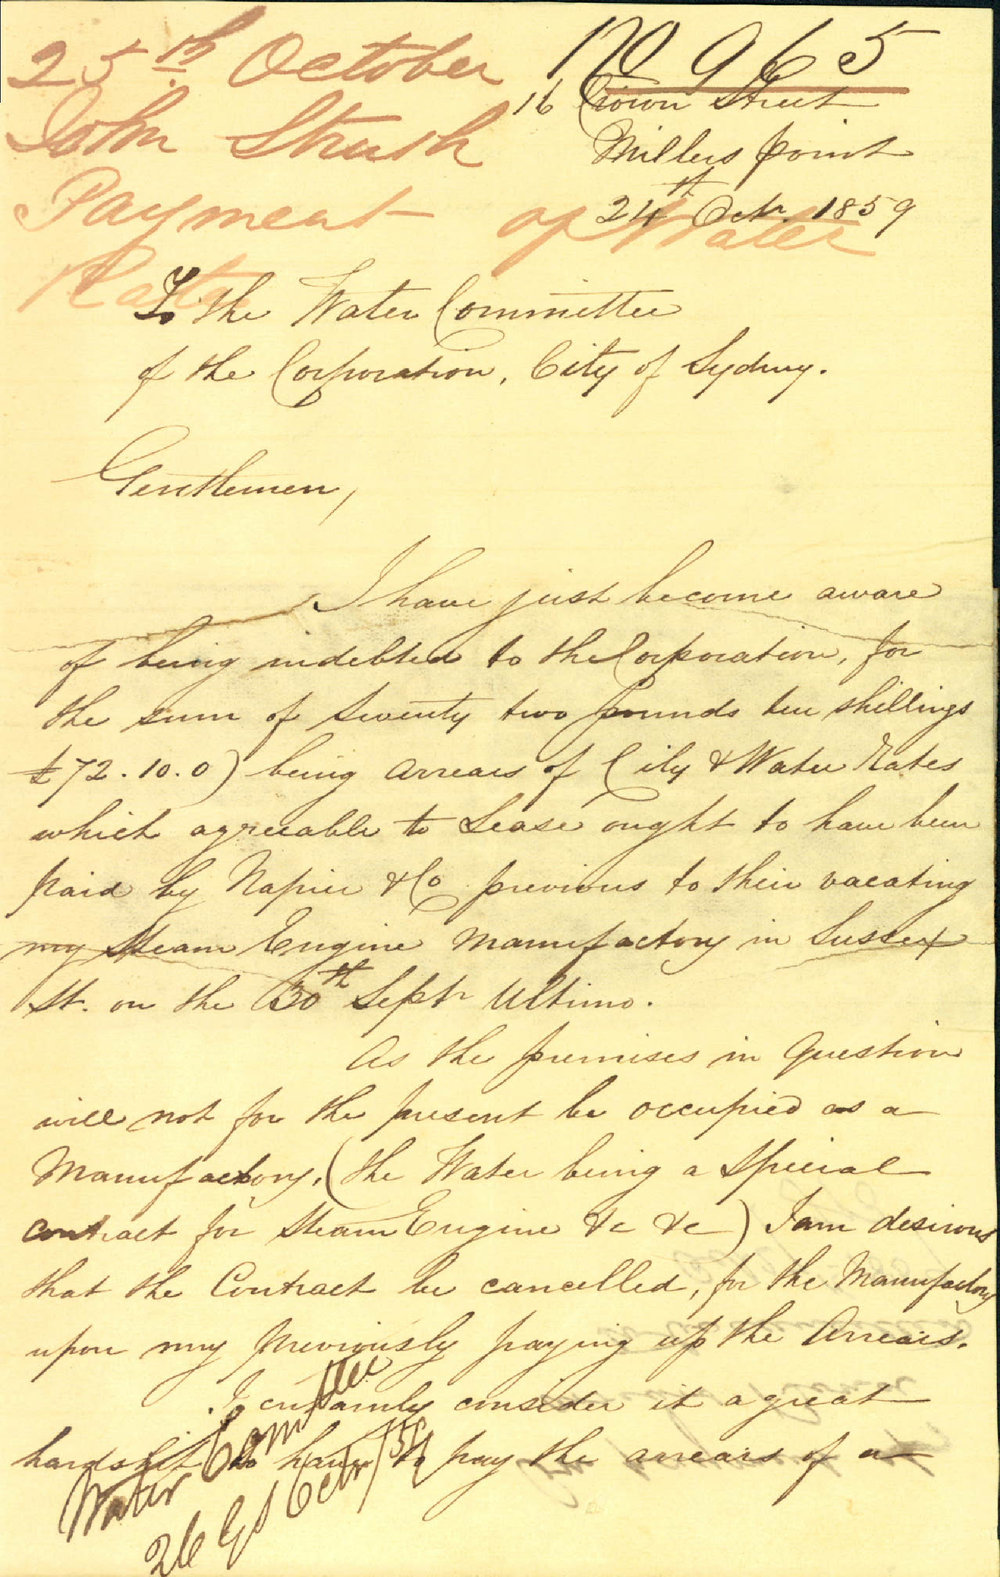 25th October
John Struth
Payment of Water
Rates
No 965
16 Crown Street
Millers point
24th Octr. 1859
To the Water Committee
of the Corporation, City of Sydney.
Gentlemen,
I have just become aware
of being indebted to the Corporation, for
the sum of Seventy two pounds ten shillings
£72.10.0) being arrears of City & Water Rates
which agreeable to Lease ought to have been
paid by Napier & Co previous to their vacating
my Steam Engine Manufactory in Sussex
St. on the 30th Septr Ultimo.
As the premises in question
will not for the present be occupied as a
Manufactory, (the Water being a Special
contract for Steam Engine &c &c) I am desirous
that the Contract be cancelled, for the Manufactory
upon my previously paying up the Arrears.
I certainly consider it a great
hardship to have to pay the arrears of a
Water Committee
26 Octr/59